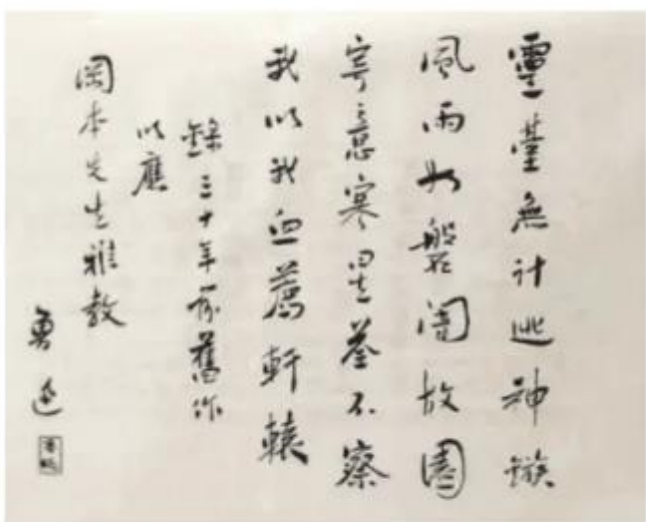 靈臺無計逃神鏃
風雨如磐闇故園
寄意寒星荃不察
我以我血薦軒轅
錄三十年前舊作
以應
岡本先生雅教
魯迅